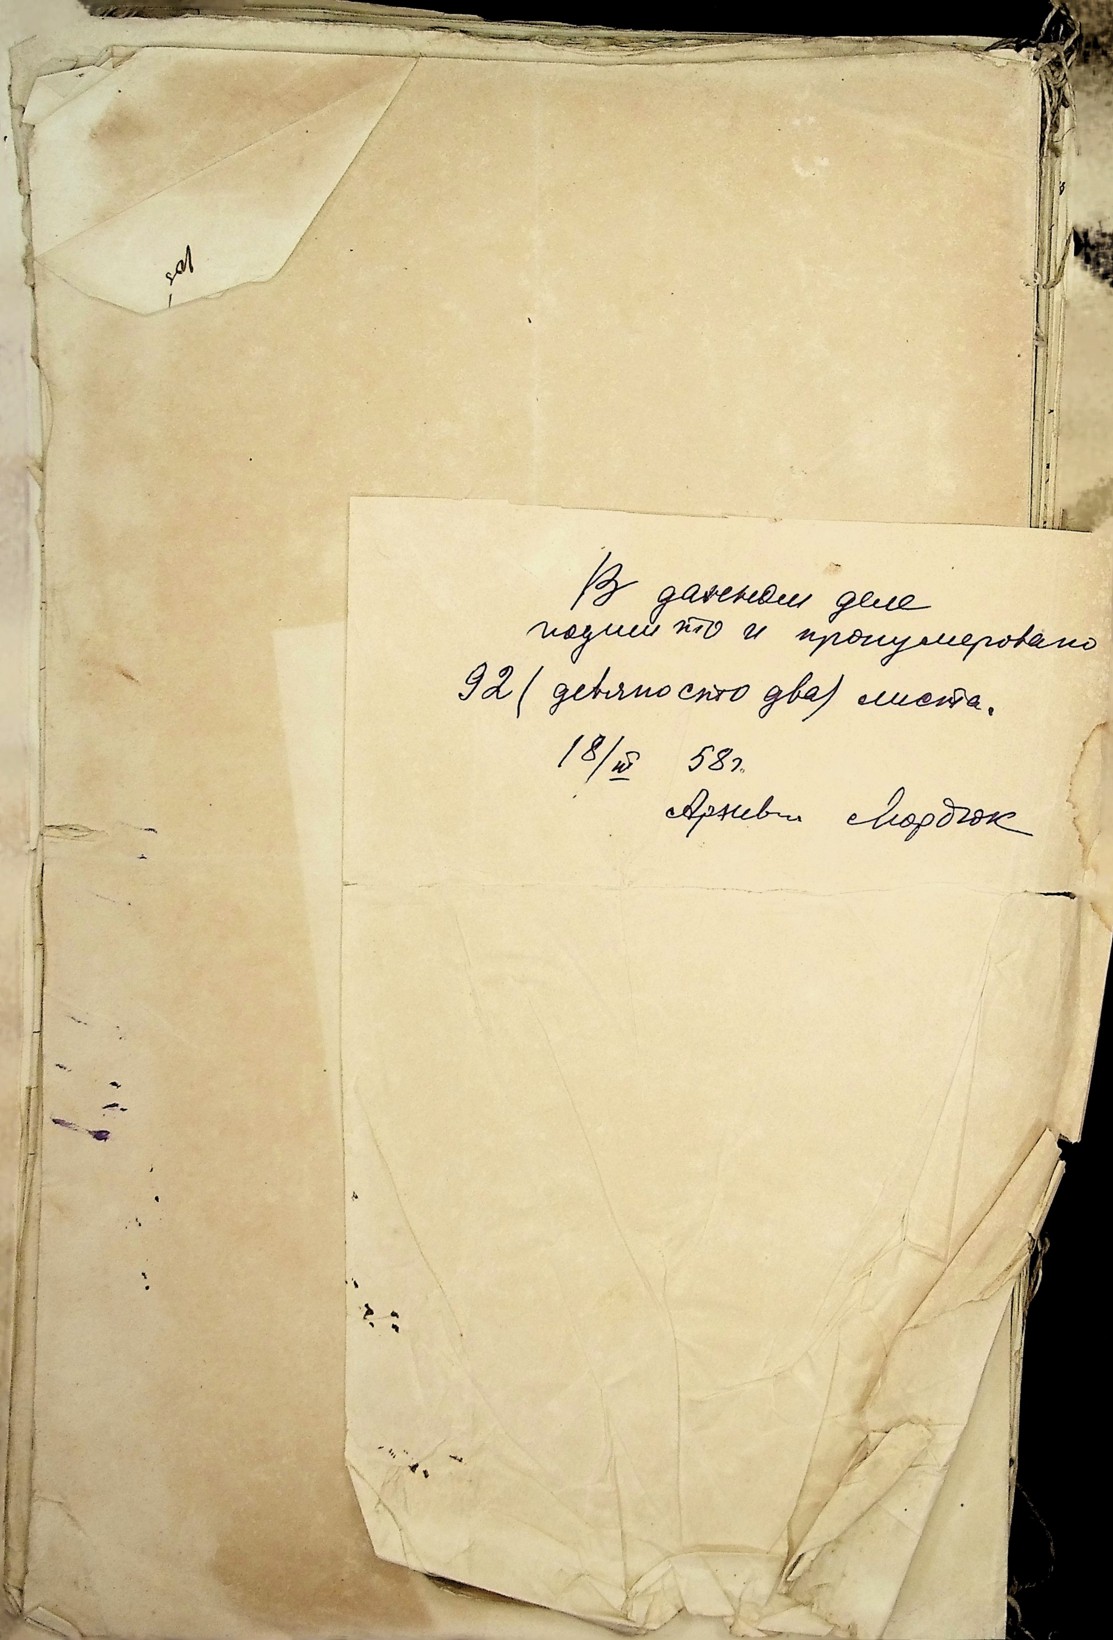 В данном деле
подшито и пронумеровано
92 (девяносто два) листа.
18/III 58г.
Архив Мордюк